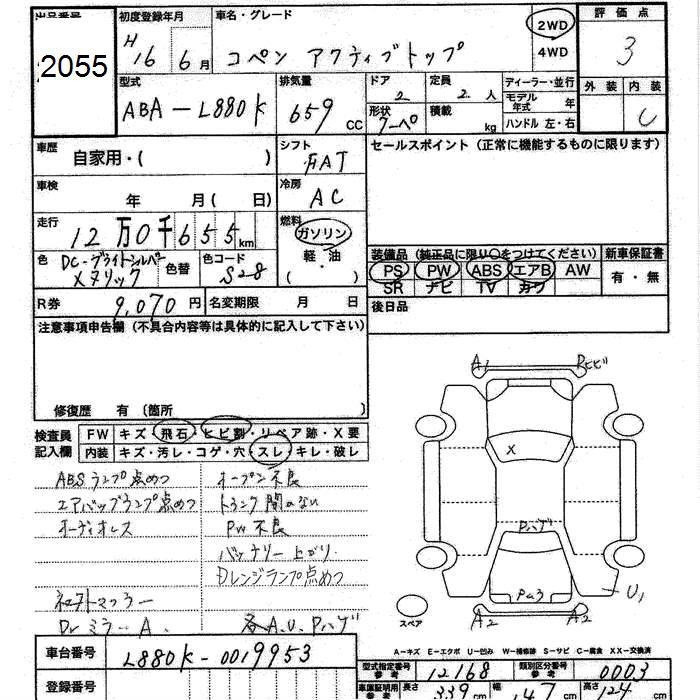 出品番号
2055
初度登録年月
H16年6月
車名・グレード
コペン アクティブトップ
2WD
4WD
評価点
3
外装 内装
C
型式
ABA-L880K
排気量
659 CC
ドア
2
形状
クーペ
定員
2 人
積載
kg
ディーラー・並行
モデル年式 年
ハンドル 左・右
車歴
自家用・( )
シフト
FAT
セールスポイント (正常に機能するものに限ります)
車検
年 月( 日)
冷房
AC
走行
12万0千655km
燃料
ガソリン
・
軽・油
( )
色
DC-ブライトシルバーメタリック
色替
色コード
S28
装備品 (純正品に限り○をつけてください)
PS PW ABS エアB AW
SR ナビ TV カワ
新車保証書
有・無
R券
9,070円
名変期限 月 日
後日品
注意事項申告欄 (不具合内容等は具体的に記入して下さい)
修復歴 有 (箇所 )
検査員
記入欄
FW キズ・飛石・ヒビ割・リペア跡・X要
内装 キズ・汚レ・コゲ・穴・スレ・キレ・破レ
ABSランプ点めつ
エアバッグランプ点めつ
オーディオレス
社外マフラー
Drミラー A.
オープン不良
トランク開かない
PW不良
バッテリー上がり.
Dレンジランプ点めつ
各A.U.Pハゲ
A1
Rヒビ
X
Pハゲ
U1
A2
A2
スペア
A-キズ E-エクボ U-凹み W-補修跡 S-サビ C-腐食 XX-交換済
車台番号
L880K-0019953
登録番号
型式指定番号
参考
12168
類別区分番号
参考
0003
車庫証明用
参考
長さ
339 cm
幅
147 cm
高さ
124 cm